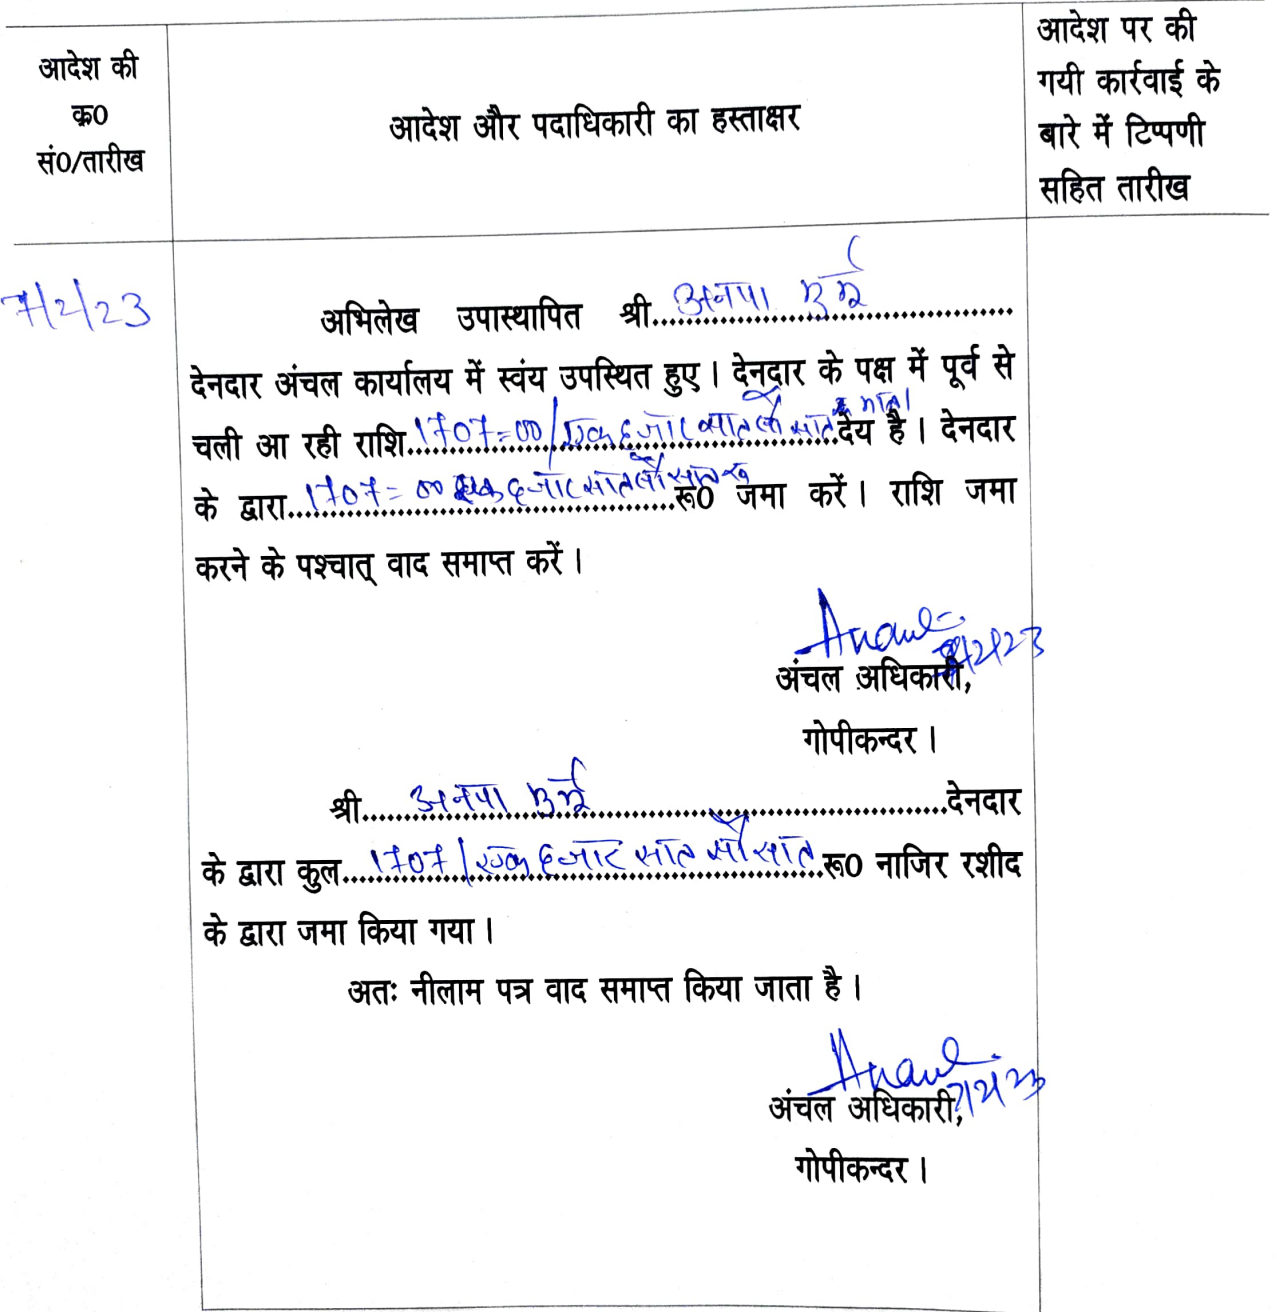 आदेश की
क्र0
सं0/तारीख
आदेश और पदाधिकारी का हस्ताक्षर
आदेश पर की
गयी कार्रवाई के
बारे में टिप्पणी
सहित तारीख
7/2/23
अभिलेख उपास्थापित श्री.....................................
देनदार अंचल कार्यालय में स्वंय उपस्थित हुए। देनदार के पक्ष में पूर्व से
चली आ रही राशि..1707=00/एक हजार सात सौ सात..देय है। देनदार
के द्वारा..1707=00 एक हजार सात सौ सात..रू0 जमा करें। राशि जमा
करने के पश्चात् वाद समाप्त करें।
अंचल अधिकारी,
गोपीकन्दर।
श्री.....................................देनदार
के द्वारा कुल..1707/एक हजार सात सौ सात..रू0 नाजिर रशीद
के द्वारा जमा किया गया।
अतः नीलाम पत्र वाद समाप्त किया जाता है।
अंचल अधिकारी,
गोपीकन्दर।